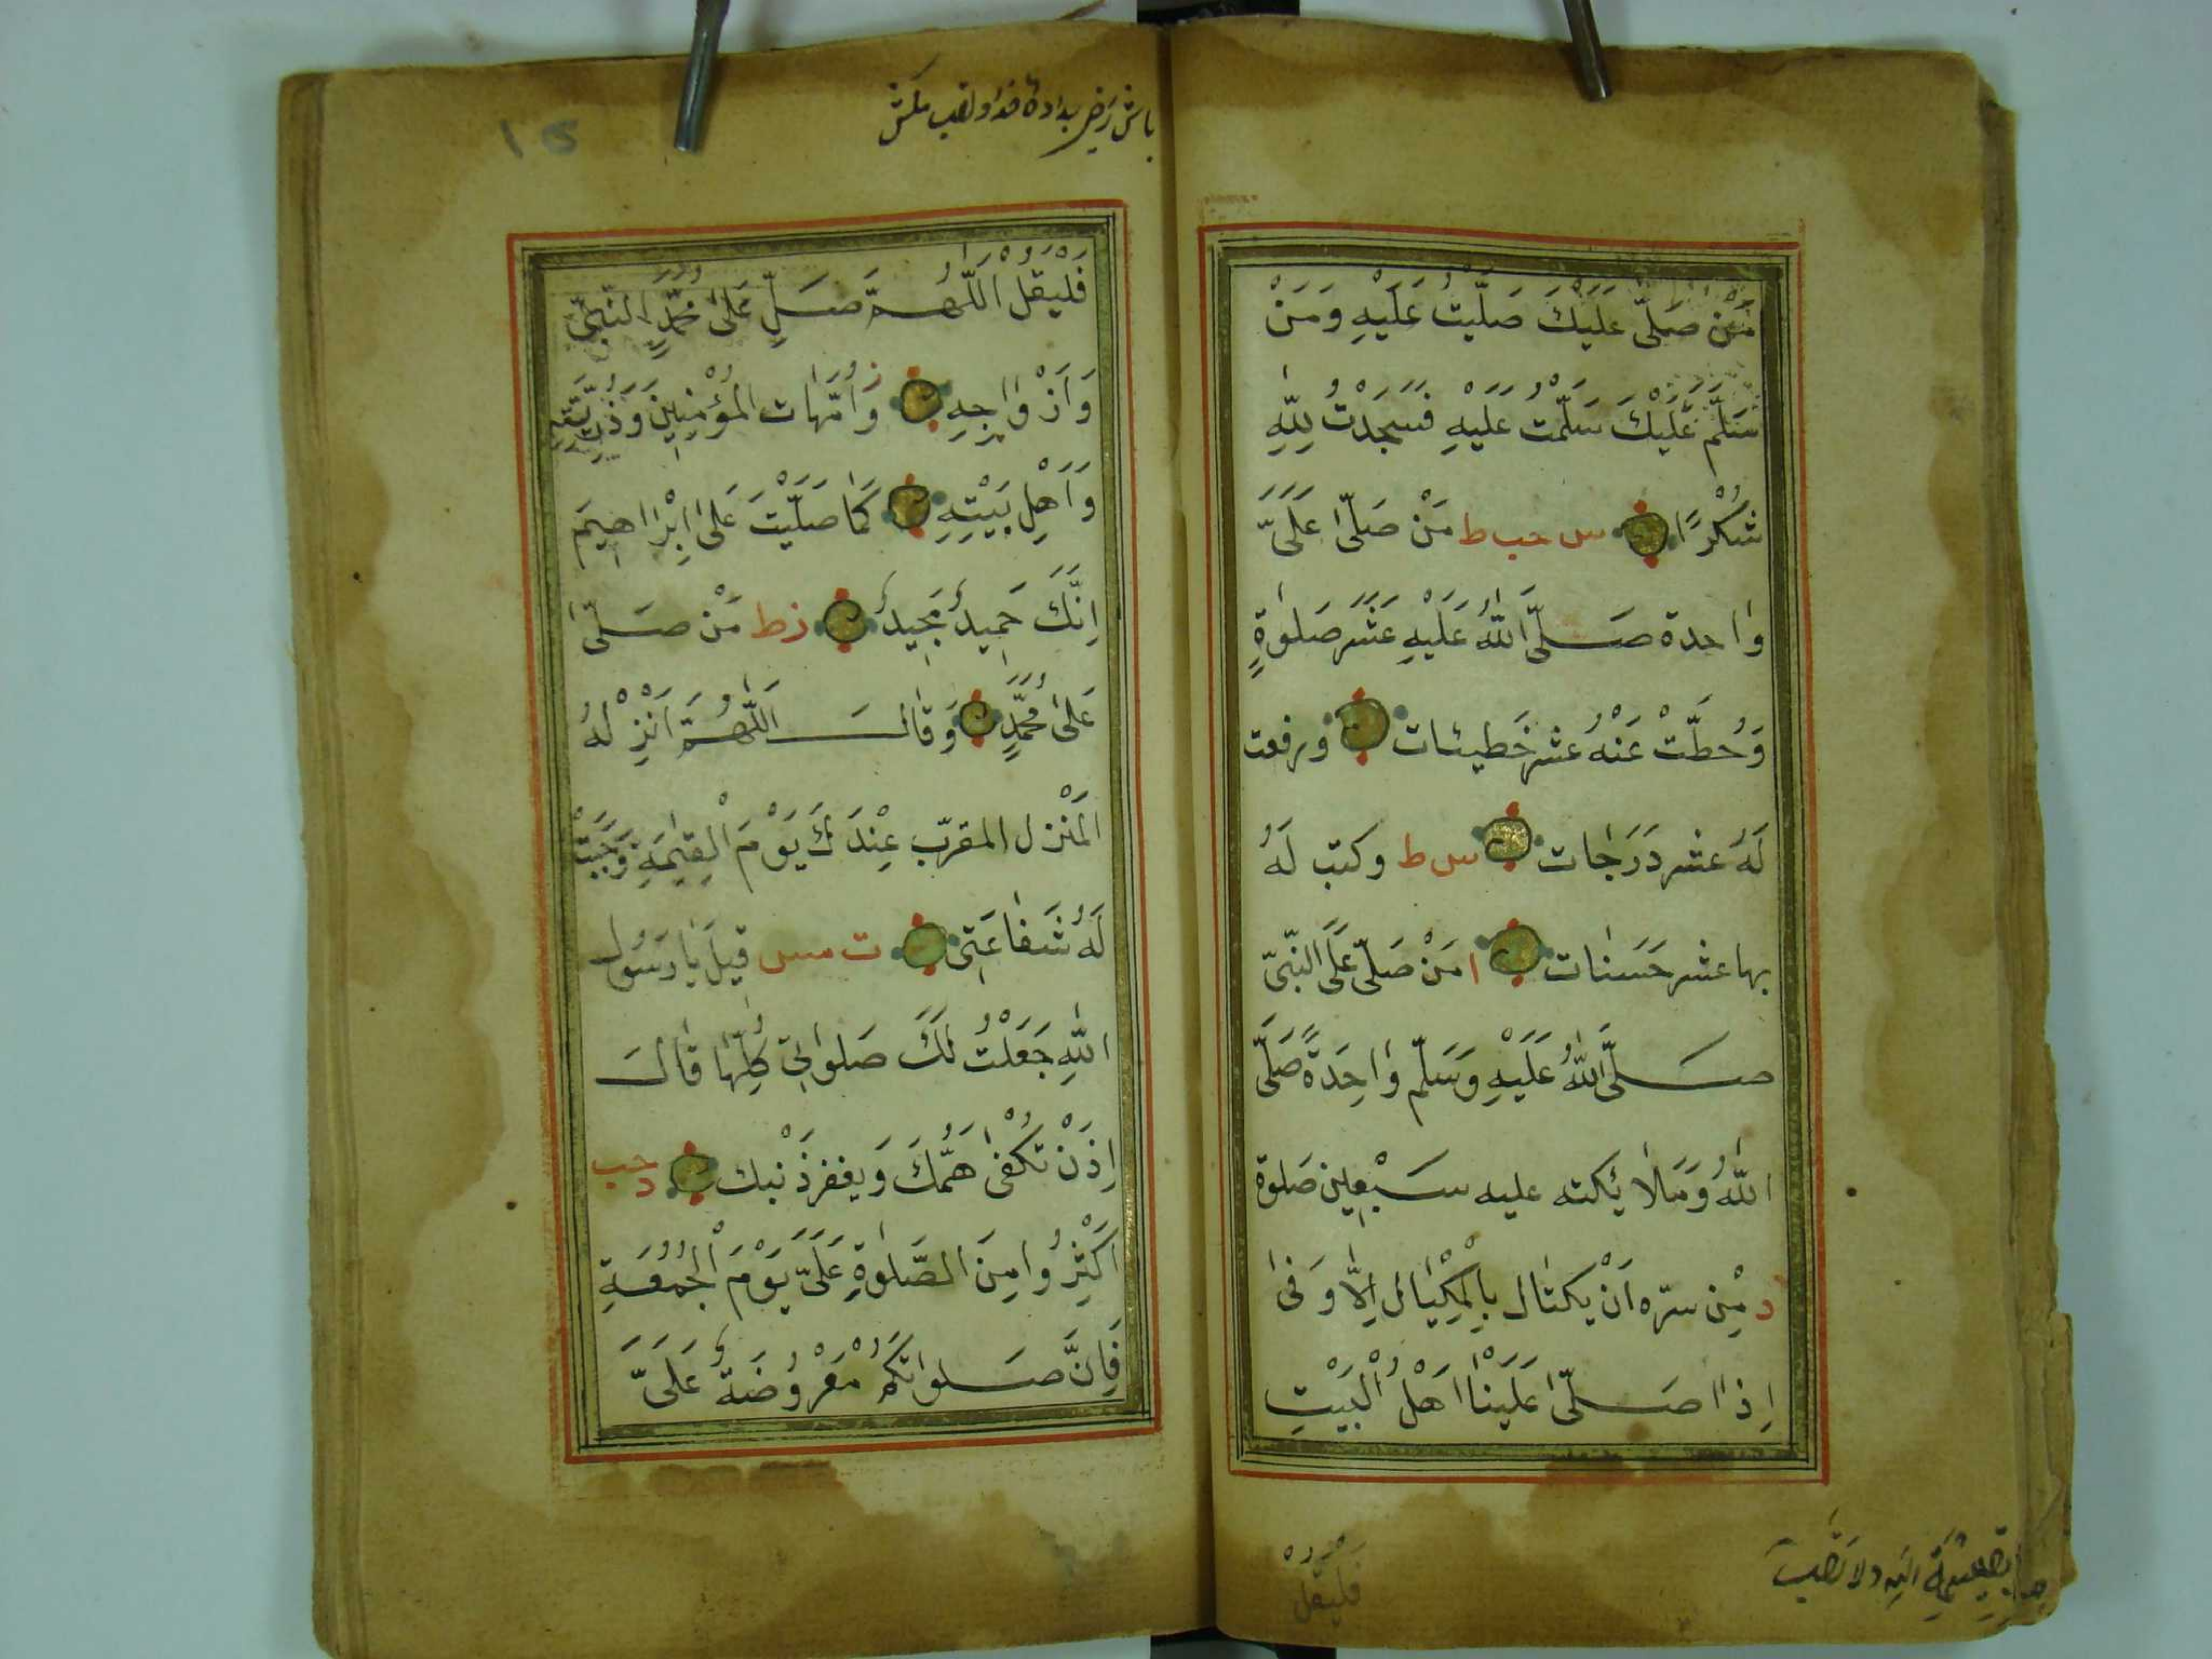 مَنْ صَلّٰى عَلَيْكَ صَلَّيْتُ عَلَيْهِ وَمَنْ
سَلَّمَ عَلَيْكَ سَلَّمْتُ عَلَيْهِ فَسَجَدْتُ لِلّٰهِ
شُكْرًا س حب ط مَنْ صَلّٰى عَلَيَّ
وٰاحدة صَلَّى اللّٰهُ عَلَيْهِ عَشَرَ صَلَوٰةٍ
وَحُطَّتْ عَنْهُ عشر خَطيئات ورفعت
لَهُ عشر دَرَجٰات س ط وكتب لَهُ
بها عشر حَسَنٰات ا مَنْ صَلّٰى عَلَى النَّبِيّ
صَلَّى اللّٰهُ عَلَيْهِ وَسَلّم وٰاحِدَةً صَلَّى
اللّٰهُ وَمَلاٰئكته عليه سَبْعِين صَلوة
د مْن سرّه اَنْ يكتٰال بِالْمِكْيٰال الاَّوَفىٰ
اِذٰا صَلّٰى عَلَيْنٰا اَهْلَ الْبَيْتِ
فَلْيَقُلْ
فَلْيَقُلْ اَللّٰهُمَّ صَلِّ عَلىٰ مُحَمَّدٍ النَّبِيّ
وَاَزْوٰاجِهِ وَاُمَّهٰات الْمُؤْمِنِين وَذُرِّيَّتِهِ
وَاَهْلِ بَيْتِهِ كَمٰا صَلَّيْتَ عَلىٰ اِبْرٰاهِيمَ
اِنَّكَ حَمِيدٌ مَجِيدٌ ز ط مَنْ صَلّٰى
عَلىٰ مُحَمَّدٍ وَقٰالَ اَللّٰهُمَّ اَنْزِلْهُ
الْمَنْزل المقرّب عِنْدَكَ يَوْمَ الْقِيٰمَةِ وَجَبَتْ
لَهُ شَفٰاعَتِى ت مس قِيلَ يٰا رَسُولَ
اللّٰهِ جَعَلْتُ لَكَ صَلَوٰاتِى كُلِّهٰا قٰالَ
اِذَنْ تُكْفىٰ هَمَّكَ وَيغفر ذَنْبك حب
د
اَكْثِرُوا مِنَ الصَّلٰوةِ عَلَيَّ يَوْمَ الْجُمُعَةِ
فَاِنَّ صَلوٰاتكُمْ مَعْرُوُضَةٌ عَلَيَّ